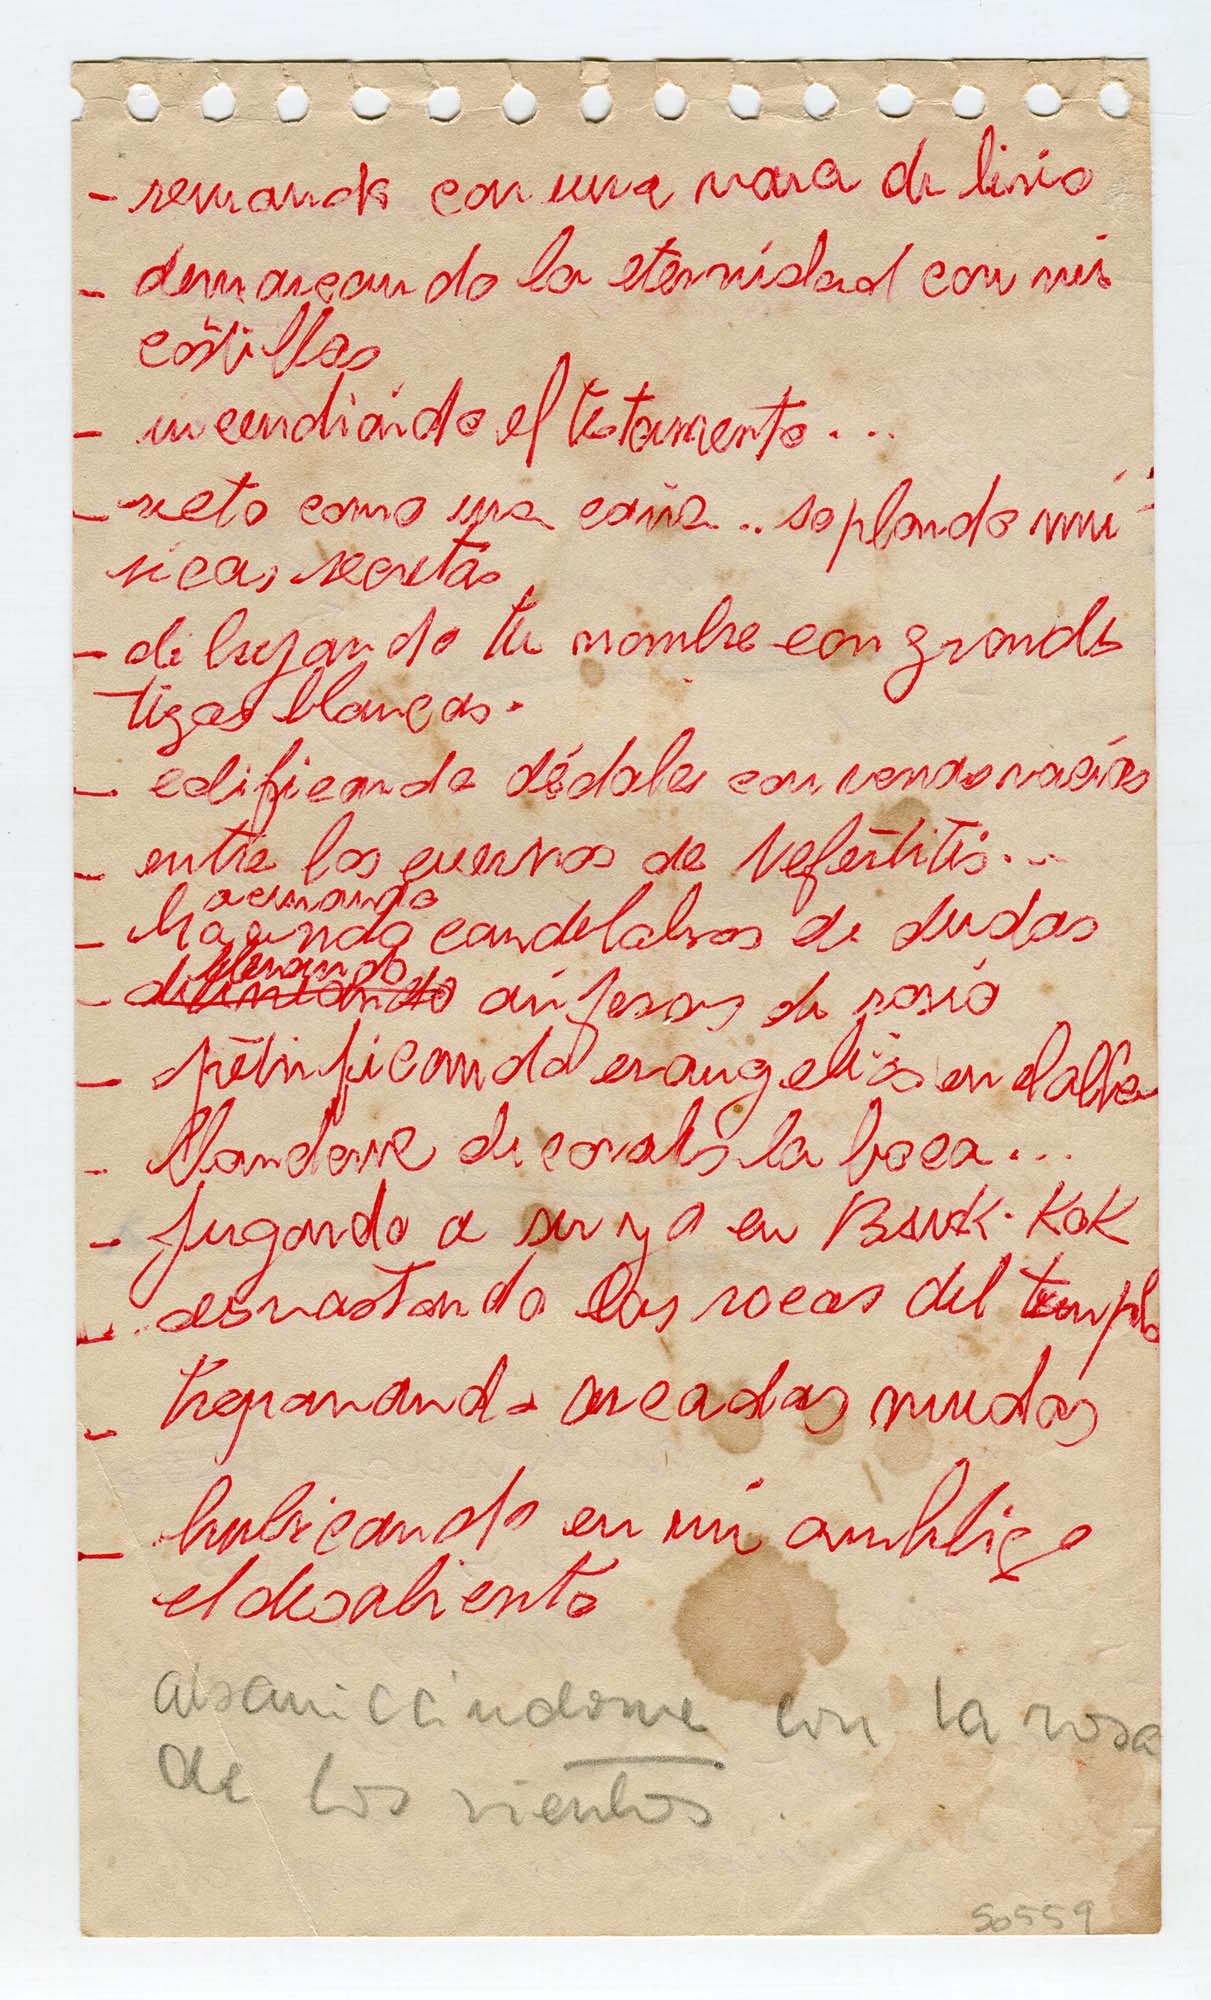 - remando con una vara de lirio
- demarcando la eternidad con mis
costillas
- incendiando el testamento...
- reto como una caña.. soplando mú-
sicas secretas
- dibujando tu nombre con grandes
tizas blancas.
- edificando dédalos con venas vacías
- entre los cuervos de Nefertitis...
armando
- haciendo candelabros de dudas
llenando
- delineando ánforas de rocío
- petrificando evangelios en el alba
- de corales la boca...
- jugando a ser yo en
- desvastando las rocas del templo
- trepanando arcadas mudas
- hubicando en mi ombligo
el desaliento
abaniccindome con la rosa
de los vientos.
50559